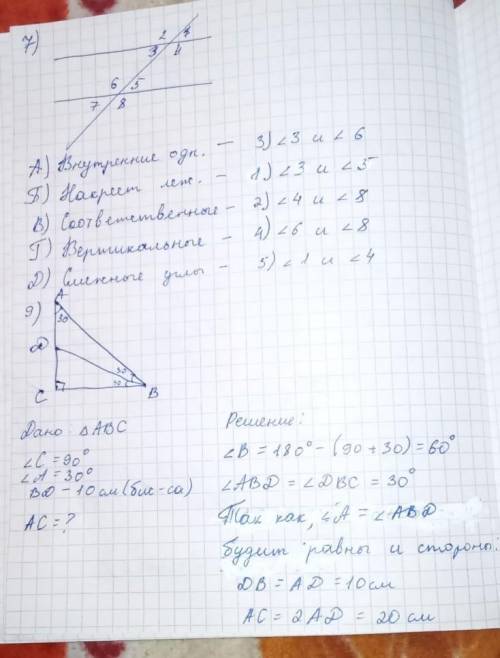 7)
2 1
3 4
6 5
7 8
А) Внутренние одн. – 3) ∠3 и ∠6
Б) Накрест леж. – 1) ∠3 и ∠5
В) Соответственные – 2) ∠4 и ∠8
Г) Вертикальные – 4) ∠6 и ∠8
Д) Смежные углы – 5) ∠1 и ∠4
9)
A
30
D
30
30
C
B
Дано △ABC
∠C = 90°
∠A = 30°
BD – 10 см (бис-са)
AC = ?
Решение:
∠B = 180° – (90 + 30) = 60°
∠ABD = ∠DBC = 30°
Так как, ∠A = ∠ABD
будит равны и стороны:
DB = AD = 10 см
AC = 2AD = 20 см